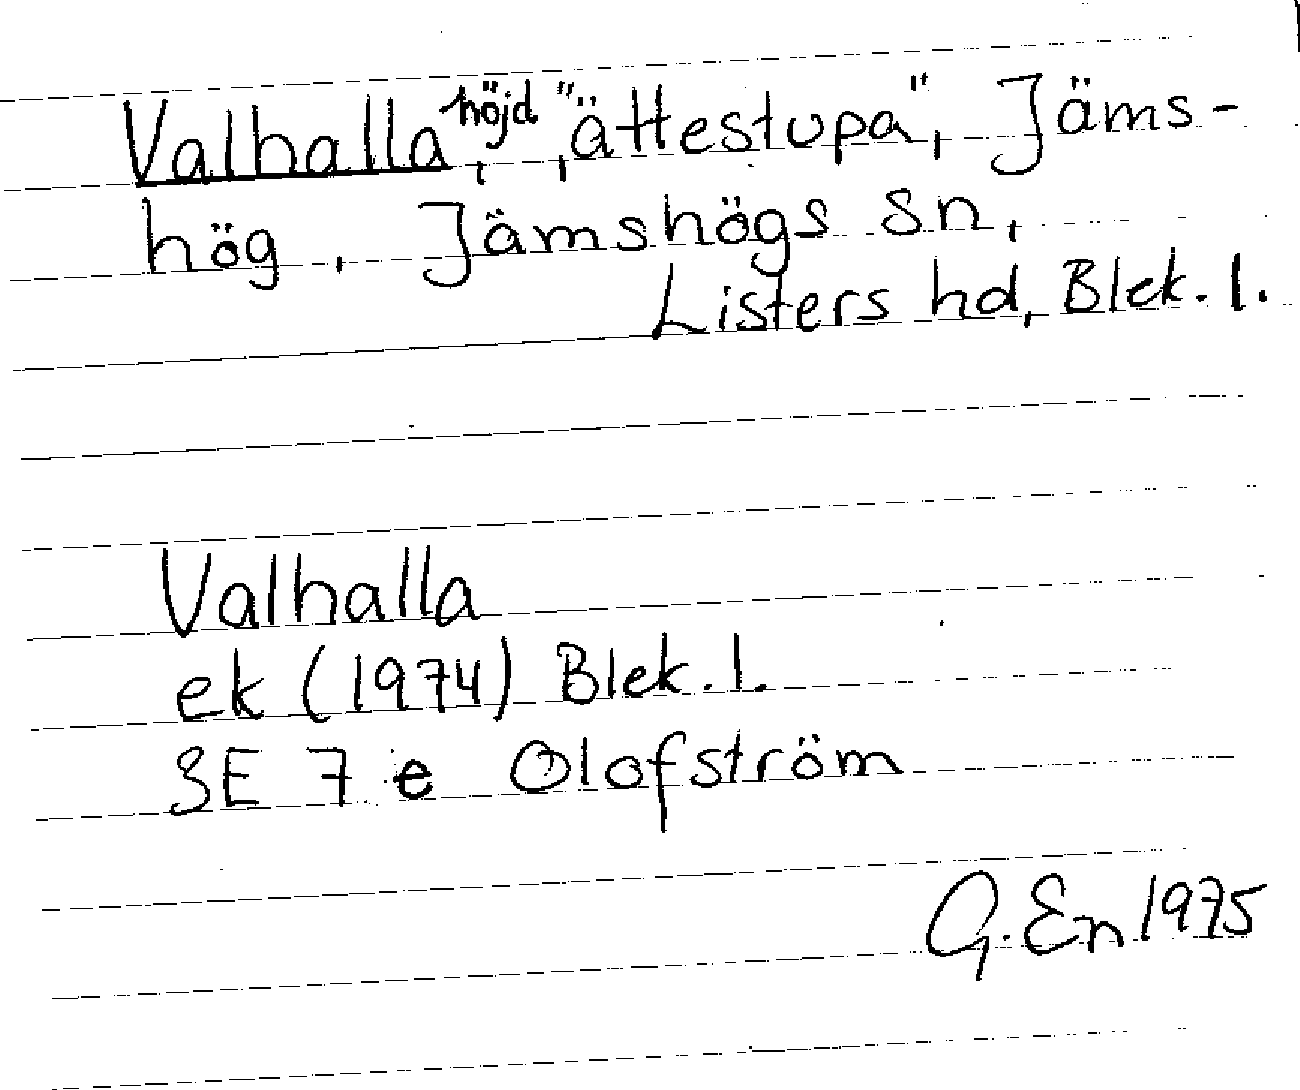 Valhalla, höjd, "ättestupa", Jäms-
hög, Jämshögs sn,
Listers hd, Blek. l.
Valhalla
ek (1974) Blek. l.
3E 7e Olofström
G. En 1975